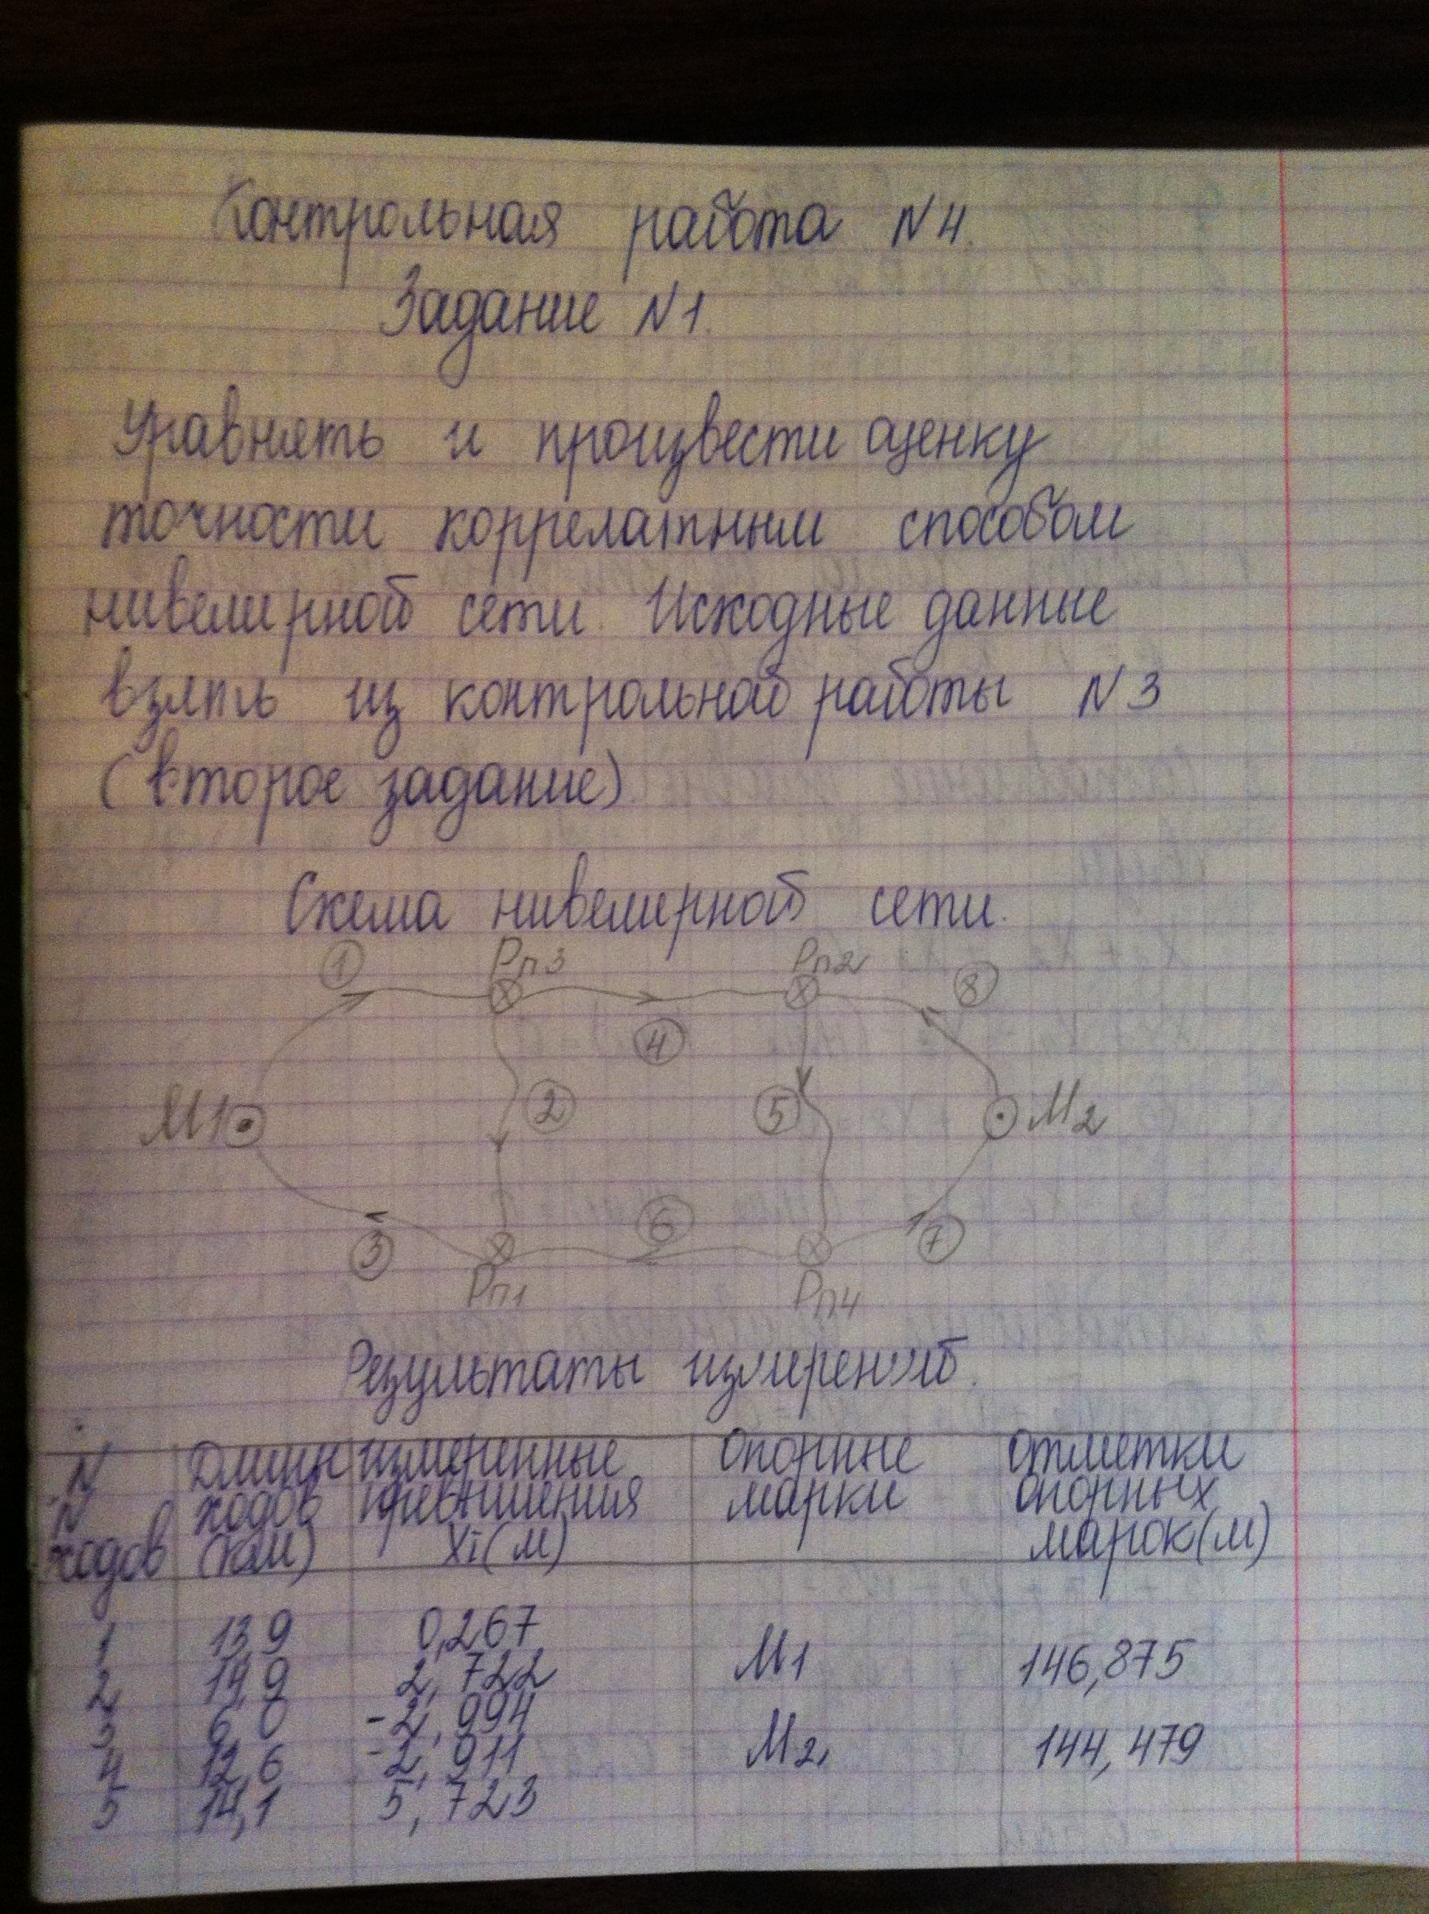 Контрольная работа N4.
Задание N1.
Уравнять и произвести оценку
точности коррелатным способом
нивелирной сети. Исходные данные
взять из контрольной работы N3
(второе задание)
Схема нивелирной сети.
1 Рп3 Рп2 8
4
М1 2 5 М2
3 6 7
Рп1 Рп4
Результаты измерений.
N Длины измеренные опорные отметки
N ходов превышения марки опорных
ходов (км) Xi(м) марок(м)
1 13,9 0,267 М1 146,875
2 14,9 2,722
3 6,0 -2,994 М2 144,479
4 12,6 -2,911
5 14,1 5,723